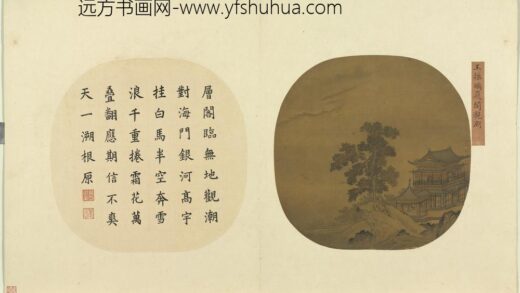 远方书画网-www.yfshuhua.com
層閣臨無地觀潮
對海門銀河高宇
挂白馬半空奔雪
浪千重捲霜花萬
疊翻應期信不爽
天一溯根原